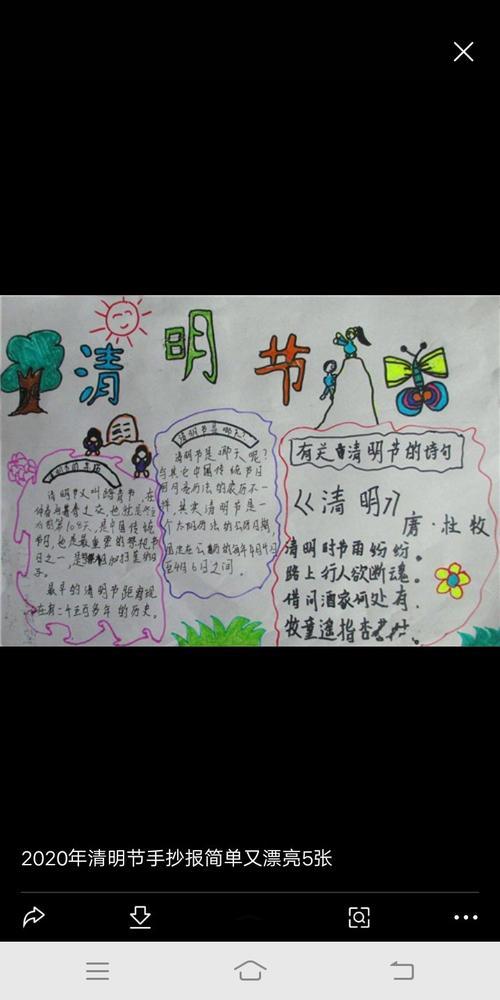 清明节
清明节是哪天?
清明节是哪天呢?
与其它中国传统节日
用月亮历法的农历不一
样,其实清明节是一
个太阳历法的公历日期,
固定在公历的每年4月4日
至4月6日之间。
清明节又叫踏青节,在
仲春与暮春之交,也就是冬至
后的第108天,是中国传统
节日,也是最重要的祭祀节
日之一,是 和扫墓的日
子。
最早的清明节距离现
在有二千五百多年的历史。
有关清明节的诗句
《清明》
唐·杜牧
清明时节雨纷纷。
路上行人欲断魂。
借问酒家何处有.
牧童遥指杏花村.
2020年清明节手抄报简单又漂亮5张